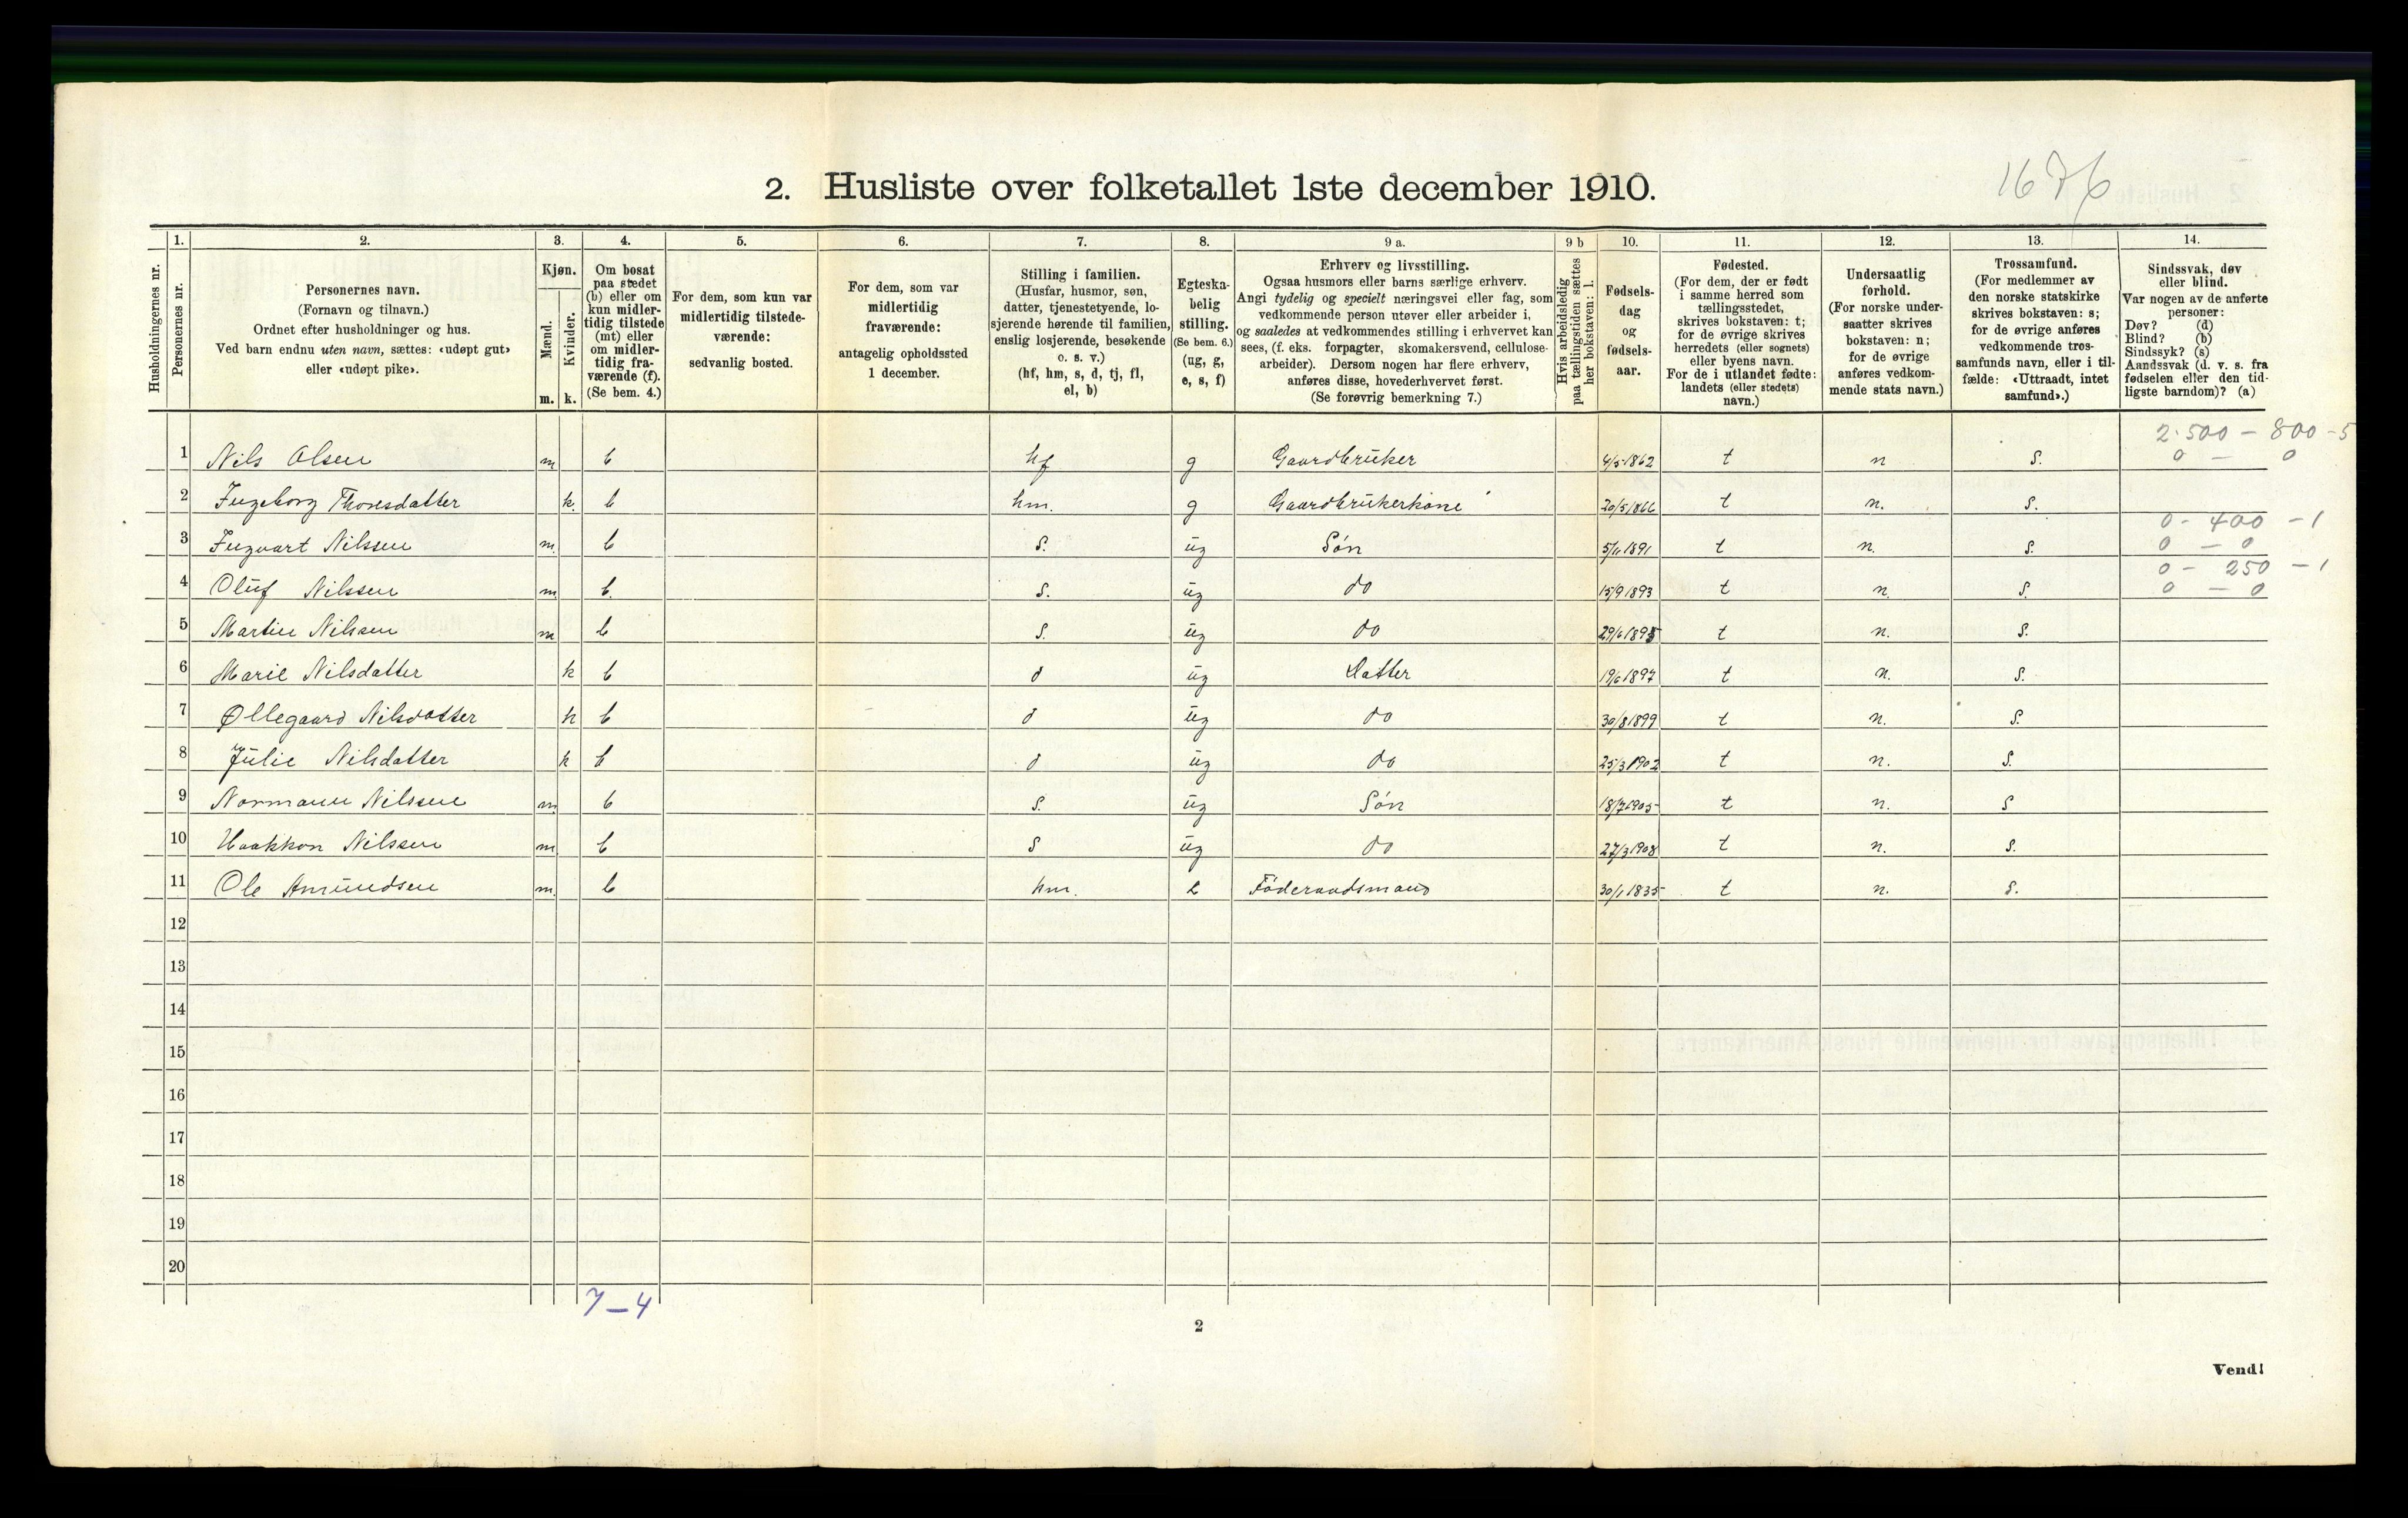 1676
2. Husliste over folketallet 1ste december 1910.
1. 2. 3. 4. 5. 6. 7. 8. 9 a. 9 b 10. 11. 12. 13. 14.
Husholdningernes nr.
Personernes nr.
Personernes navn.
(Fornavn og tilnavn.)
Ordnet efter husholdninger og hus.
Ved barn endnu uten navn, sættes: «udøpt gut»
eller «udøpt pike».
Kjøn.
Mænd.
Kvinder.
m. k.
Om bosat
paa stedet
(b) eller om
kun midler-
tidig tilstede
(mt) eller
om midler-
tidig fra-
værende (f).
(Se bem. 4.)
For dem, som kun var
midlertidig tilstede-
værende:
sedvanlig bosted.
For dem, som var
midlertidig
fraværende:
antagelig opholdssted
1 december.
Stilling i familien.
(Husfar, husmor, søn,
datter, tjenestetyende, lo-
sjerende hørende til familien,
enslig losjerende, besøkende
o. s. v.)
(hf, hm, s, d, tj, fl,
el, b)
Egteska-
belig
stilling.
(Se bem. 6.)
(ug, g,
e, s, f)
Erhverv og livsstilling.
Ogsaa husmors eller barns særlige erhverv.
Angi tydelig og specielt næringsvei eller fag, som
vedkommende person utøver eller arbeider i,
og saaledes at vedkommendes stilling i erhvervet kan
sees, (f. eks. forpagter, skomakersvend, cellulose-
arbeider). Dersom nogen har flere erhverv,
anføres disse, hovederhvervet først.
(Se forøvrig bemerkning 7.)
Hvis arbeidsledig
paa tællingstiden sættes
her bokstaven: l.
Fødsels-
dag
og
fødsels-
aar.
Fødested.
(For dem, der er født
i samme herred som
tællingsstedet,
skrives bokstaven: t;
for de øvrige skrives
herredets (eller sognets)
eller byens navn.
For de i utlandet fødte:
landets (eller stedets)
navn.)
Undersaatlig
forhold.
(For norske under-
saatter skrives
bokstaven: n;
for de øvrige
anføres vedkom-
mende stats navn.)
Trossamfund.
(For medlemmer av
den norske statskirke
skrives bokstaven: s;
for de øvrige anføres
vedkommende tros-
samfunds navn, eller i til-
fælde: «Uttraadt, intet
samfund».)
Sindssvak, døv
eller blind.
Var nogen av de anførte
personer:
Døv? (d)
Blind? (b)
Sindssyk? (s)
Aandssvak (d. v. s. fra
fødselen eller den tid-
ligste barndom)? (a)
2.500 - 800 - 5
1 Nils Olsen m b hf g Gaardbruker 4/5 1862 t n s. 0 - 0
2 Ingeborg Thoresdatter k. b hm. g Gaardbrukerkone 20/5 1866 t n. s.
0 - 400 - 1
3 Ingvart Nilssen m. b s. ug Søn 5/11 1891 t n. s. 0 - 0
0 - 250 - 1
4 Oluf Nilssen m. b. s. ug do 15/9 1893 t n. s. 0 - 0
5 Martin Nilssen m b s. ug do 29/6 1895 t n. s.
6 Marie Nilsdatter k b d ug Datter 19/6 1897 t n. s.
7 Øllegaard Nilsdatter k b d ug do 30/8 1899 t n. s.
8 Julie Nilsdatter k b d ug do 25/3 1902 t n. s.
9 Normann Nilssen m. b s. ug Søn 18/7 1905 t n. s
10 Haakkon Nilssen m. b s ug do 27/3 1908 t n. s.
11 Ole Amundsen m. b hm. e Føderaadsmand 30/1 1835 t n. s.
12
13
14
15
16
17
18
19
20
7 - 4
2
Vend!